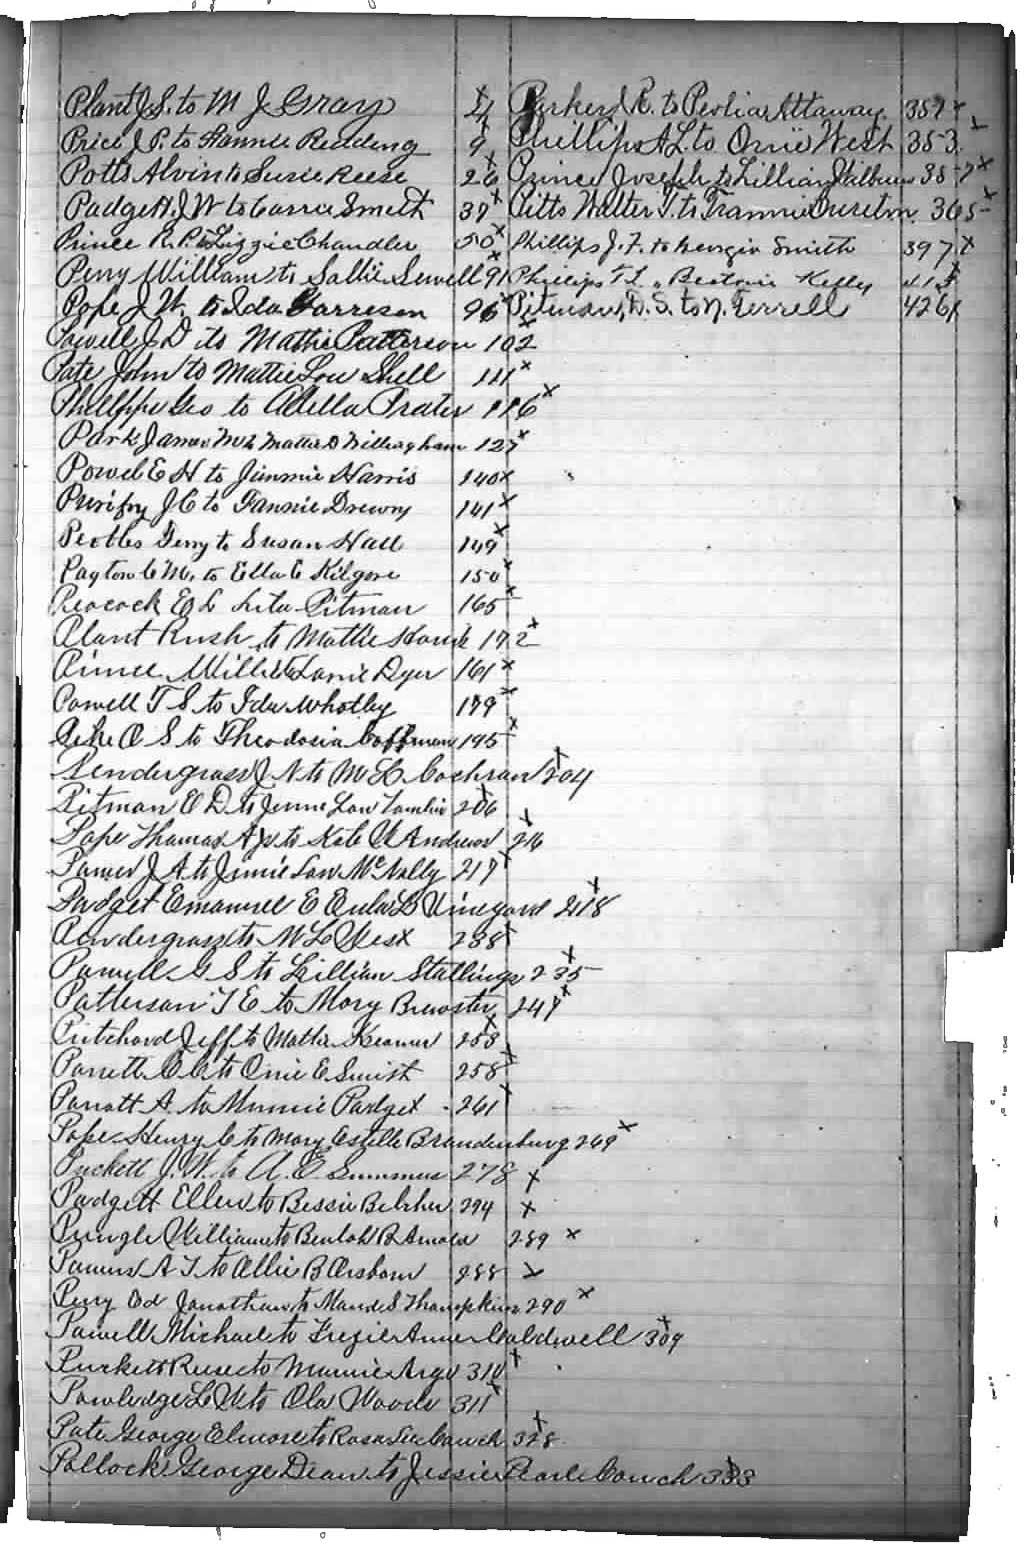 Plant J. S. to M J Gray 4
Price J. P. to Fannie Redding 9
Potts Alvin to Susie Reese 26
Padgett J W to Carrie Smith 39
Prince R. P. to Lizzie Chandler 50
Perry William to Sallie Sewell 91
Pope J W. to Ida Garrison 96
Powell J D to Mattie Patterson 102
Pate John to Mattie Lou Shell 111
Phillppe Geo to Adella Prater 116
Park James M to Mattie D Willingham 127
Powel E H to Jimmie Harris 140
Purifoy J C to Fannie Drewry 141
Peebles Terry to Susan Hall 149
Payton C M. to Ella C Kilgore 150
Peacock E L Lita Pitman 165
Plant Rush to Mattie 172
Prince Will to Lonie Dyer 161
Powell T S to Ida Whatley 179
Pike O S to Theodosia Coffman 195
Pendergrass J N to M L Cochran 204
Pitman E D to Jennie Lou Tomlin 206
Pope Thomas A to Kate Andrews 216
J A to Jimie Low McNally 217
Padget Emanuel E Eula L Vineyard 218
Pendergrass to M L West 238
Powell G S to Lillian Stallings 235
Patterson T E to Mary Brewster 247
Pritchard Jeff to Mattie 253
Parrett to Onie E Smith 258
Parrott A. to Minnie Padget 261
Pope Henry C to Mary Estelle Brandenburg 269
Puckett J. W. to A. E. Summers 278
Padgett Ellen to Bessie Belcher 294
Pringle William to Beulah B Arnold 289
A T to Allie B 288
Perry Ed Jonathan to Maude S Thompkins 290
Powell Michael to Annie Caldwell 309
Puckett Reese to Mamie Argo 310
Powledge L W to Ola Woods 311
Pate George Elmore to Rosa Lee Couch 328
Pollock George Dean to Jessie Pearl Couch 333
Parker J R. to Peolia Attaway 357
Phillips A L to Onie West 353
Prince Joseph to Lillian 357
Pitts Walter T. to Frannie Cureton 365
Phillips J. F. to Georgia Smith 397
Phillips T L " Beatrice Kelly 413
Pitman, D. S. to N. Terrell 426